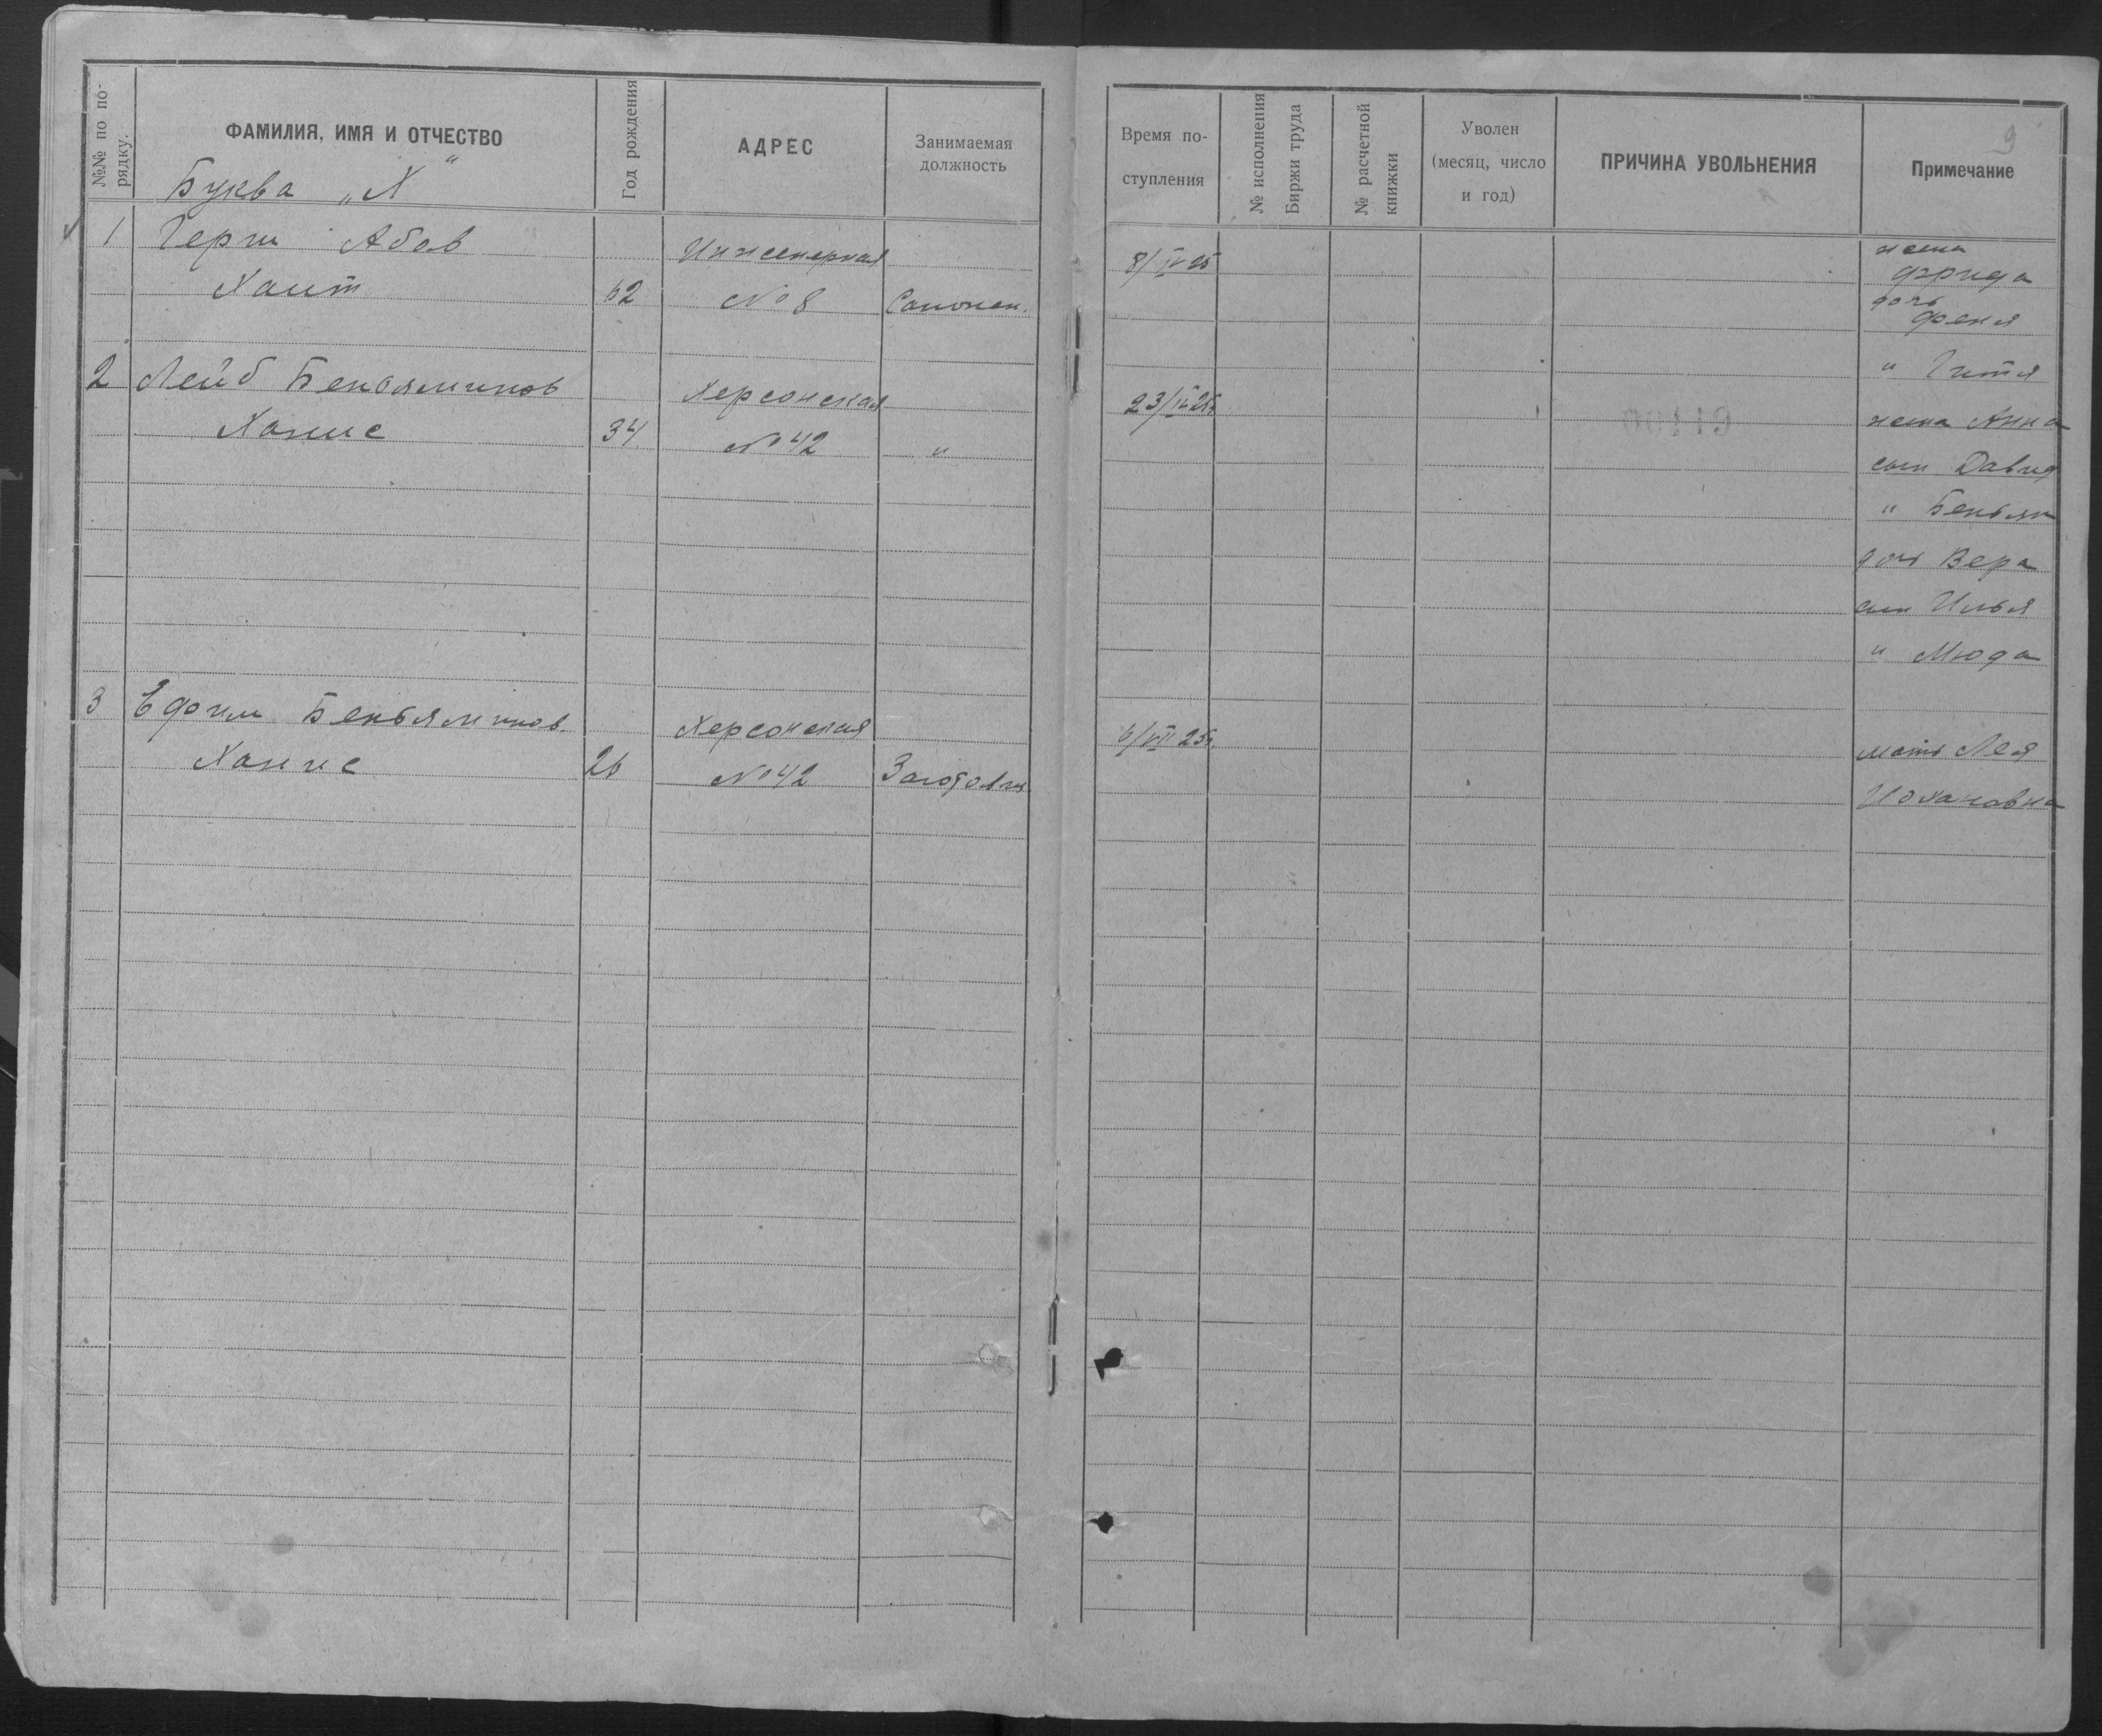 №№ по по-
рядку.
ФАМИЛИЯ, ИМЯ И ОТЧЕСТВО
Год рождения
АДРЕС
Занимаемая
должность
Буква „Х“
1 Герш Абов Инженерная
Хаит 62 № 8 Сапожн.
2 Лейб Беньяминов Херсонская
Ханис 34 № 42 "
3 Ефим Беньяминов. Херсонская
Ханис 26 № 42
Время по-
ступления
№ исполнения
Биржи труда
№ расчетной
книжки
Уволен
(месяц, число
и год)
ПРИЧИНА УВОЛЬНЕНИЯ
Примечание
9
8/IV 25 жена
Фрида
дочь
Феня
" Гитя
23/IV 25г. жена Анна
сын Давид
" Беньям
дочь Вера
сын Илья
" Мюда
6/VII 25г. мать Лея
Иохановна